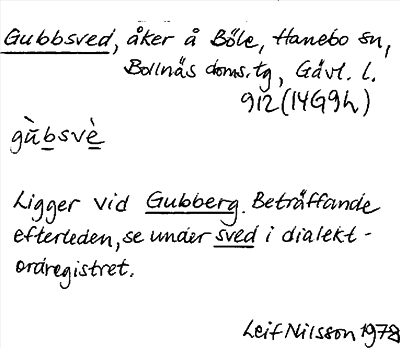 Gubbsved, åker å Böle, Hanebo sn,
Bollnäs doms.tg, Gävl. l.
912 (14G9h)
gù̀bsvè
Ligger vid Gubberg. Beträffande
efterleden, se under sved i dialekt-
ordregistret.
Leif Nilsson 1978